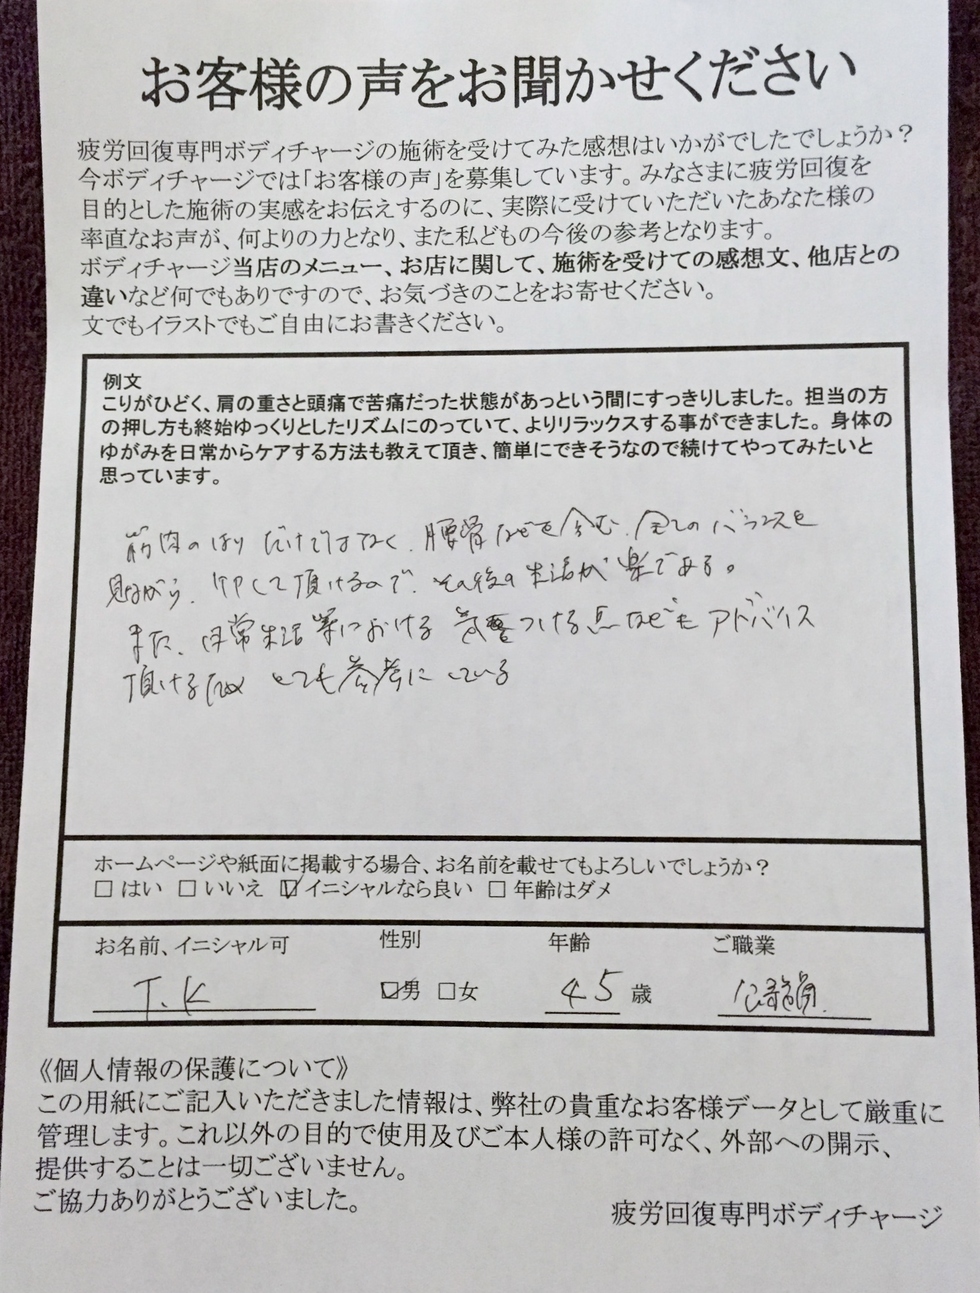 お客様の声をお聞かせください
疲労回復専門ボディチャージの施術を受けてみた感想はいかがでしたでしょうか？
今ボディチャージでは「お客様の声」を募集しています。みなさまに疲労回復を
目的とした施術の実感をお伝えするのに、実際に受けていただいたあなた様の
率直なお声が、何よりの力となり、また私どもの今後の参考となります。
ボディチャージ当店のメニュー、お店に関して、施術を受けての感想文、他店との
違いなど何でもありですので、お気づきのことをお寄せください。
文でもイラストでもご自由にお書きください。
例文
こりがひどく、肩の重さと頭痛で苦痛だった状態があっという間にすっきりしました。担当の方
の押し方も終始ゆっくりとしたリズムにのっていて、よりリラックスする事ができました。身体の
ゆがみを日常からケアする方法も教えて頂き、簡単にできそうなので続けてやってみたいと
思っています。
筋肉のはりだけではなく、腰骨などを含む、全てのバランスを
見ながら、押して頂けるので、その後の生活が楽である。
また、日常生活等における気をつける点などもアドバイス
頂けるためとても参考にしている
ホームページや紙面に掲載する場合、お名前を載せてもよろしいでしょうか？
□はい □いいえ ☑イニシャルなら良い □年齢はダメ
お名前、イニシャル可 性別 年齢 ご職業
T.K ☑男 □女 45歳 公務員
《個人情報の保護について》
この用紙にご記入いただきました情報は、弊社の貴重なお客様データとして厳重に
管理します。これ以外の目的で使用及びご本人様の許可なく、外部への開示、
提供することは一切ございません。
ご協力ありがとうございました。
疲労回復専門ボディチャージ